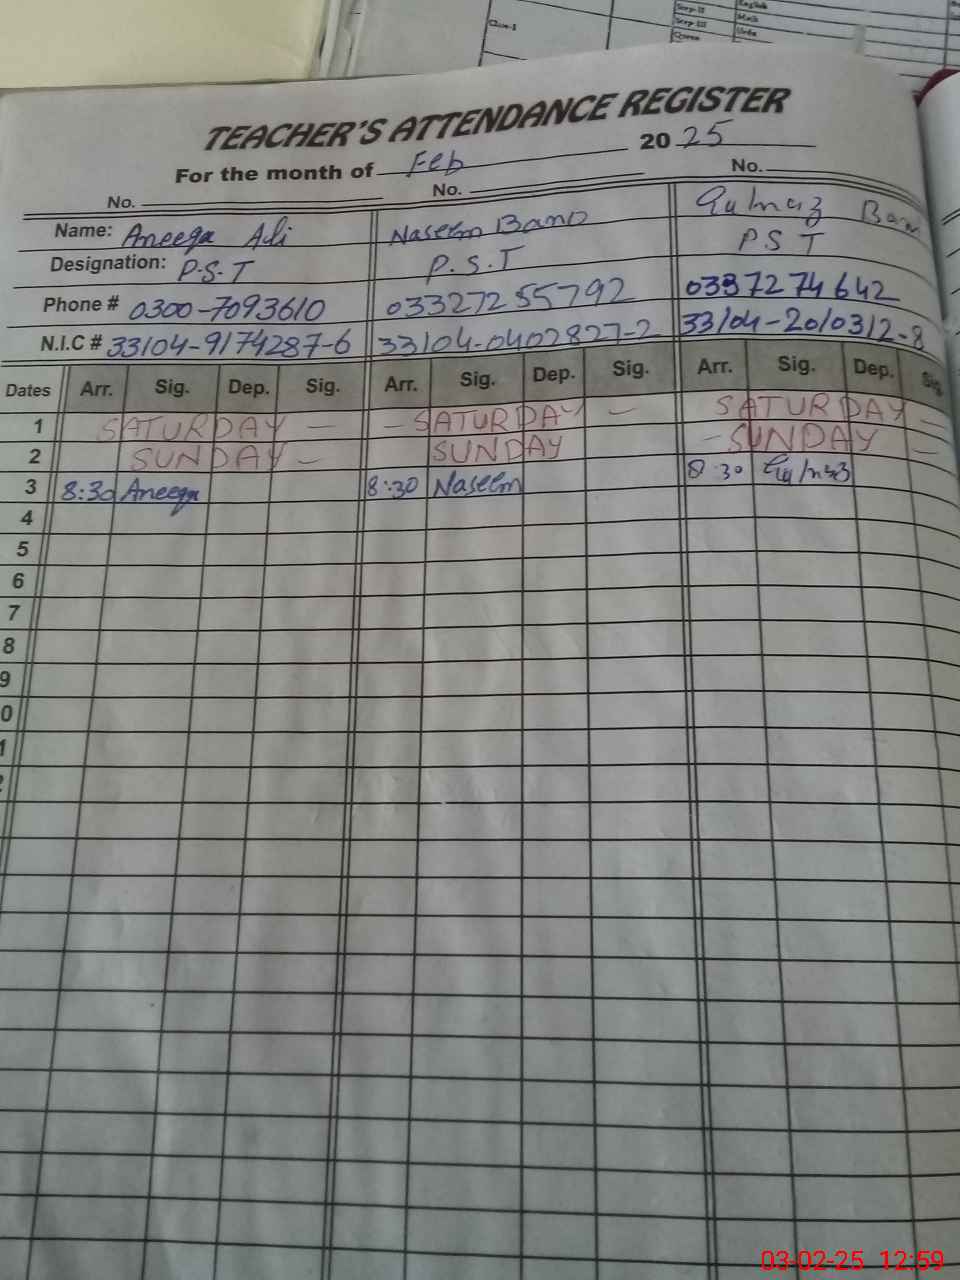 English
Serp-III
Math
Class-I
Urdu
TEACHER'S ATTENDANCE REGISTER
For the month of Feb 2025
No. No. No.
Name: Aneeqa Ali Naseem Bano Gulnaz Bano
Designation: P.S.T P.S.T P S T
Phone # 0300-7093610 03327255792 0337274642
N.I.C # 33104-9174287-6 33104-0402827-2 33104-2010312-8
Dates Arr. Sig. Dep. Sig. Arr. Sig. Dep. Sig. Arr. Sig. Dep. Sig
1 SATURDAY — — SATURDAY — SATURDAY —
2 SUNDAY — SUNDAY — SUNDAY —
3 8:30 Aneeqa 8:30 Naseem 8:30 Gulnaz
4
5
6
7
8
9
0
1
2
03-02-25 12:59